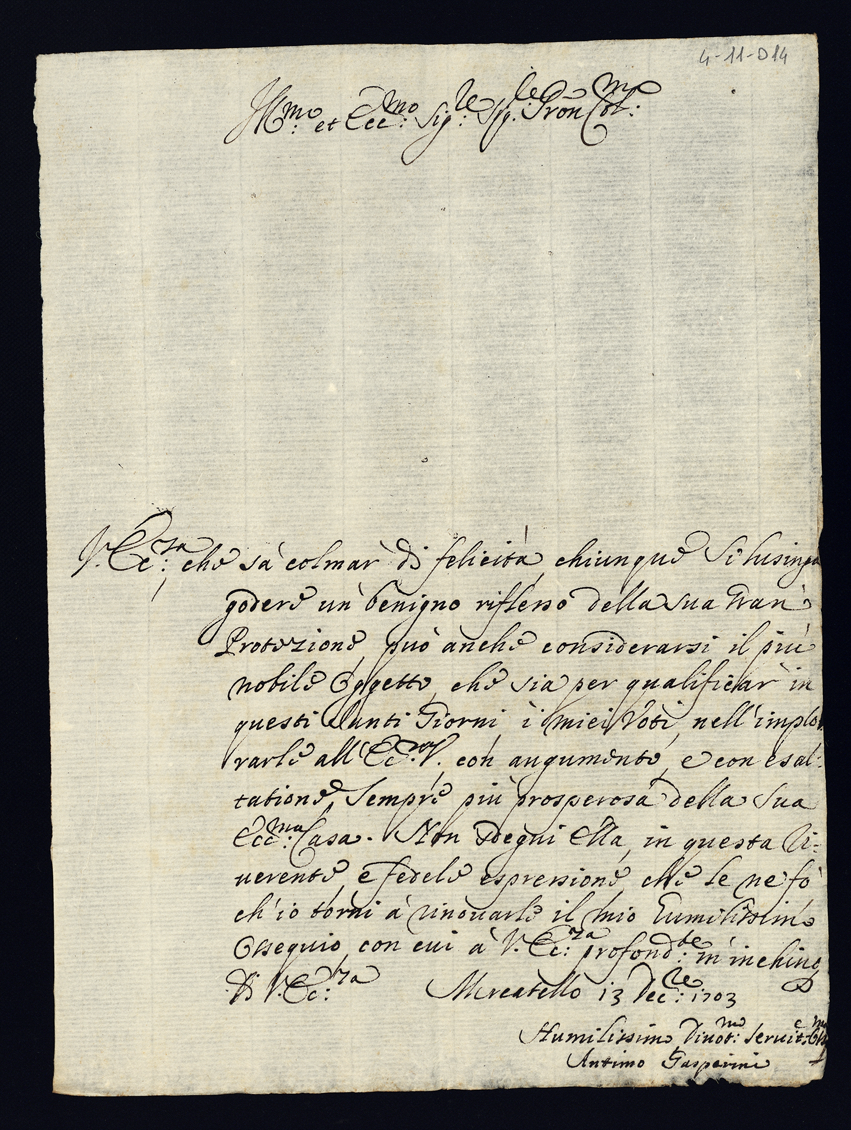 4-11-D14
Ill.mo et Ecc.mo Sig.re Sig.re Pron Col.mo
V. Ecc.za, che sà colmar di felicità chiunque si lusinga
godere un benigno riflesso della sua gran
Protezione, può anche considerarsi il più
nobile oggetto, che sia per qualificar in
questi Santi Giorni i miei Voti, nell'implo
rarle all'Ecc.V. con augumento, e con esal:
tatione sempre più prosperosa della sua
Ecc.ma Casa. Non sdegni Ella, in questa ri:
uerente, e fedele espressione, che le ne fò
ch'io torni à rinouarle il mio humilissimo
ossequio, con cui à V. Ecc.za profond.te m'inchino
Di V. Ecc.za
Mercatello 13 Dec.re 1703
Humilissimo Diuot.mo Seruit.e
Antimo Gasparini